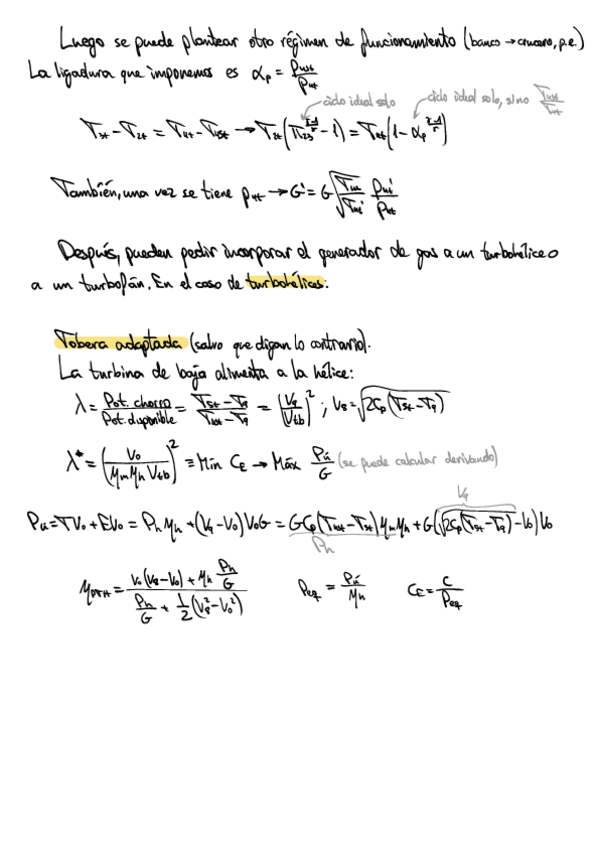 Luego se puede plantear otro régimen de funcionamiento (banco → crucero, p.e.)
La ligadura que imponemos es αₚ = p₄₅t/p₄t
ciclo ideal solo
ciclo ideal solo, sino T₄₅t/T₄t
T₃t − T₂t = T₄t − T₄₅t → T₂t(π₂₃^((γ−1)/γ) − 1) = T₄t(1 − αₚ^((γ−1)/γ))
También, una vez se tiene p₄t → G' = G √(T₄t/T₄t') p₄t'/p₄t
Después, pueden pedir incorporar el generador de gas a un turbohélice o
a un turbofán. En el caso de turbohélices:
Tobera adaptada (salvo que digan lo contrario).
La turbina de baja alimenta a la hélice:
λ = Pot. chorro/Pot. disponible = (T₅t − T₉)/(T₄₅t − T₉) = (V₉/Vtb)²; V₈ = √(2Cp(T₅t − T₉))
λ* = (V₀/(ηmηhVtb))² ≡ Mín CE → Máx Pú/G (se puede calcular derivando)
V₉
Pú = TV₀ + EV₀ = Phηh + (V₉ − V₀)V₀G = GCp(T₄₅t − T₅t)ηmηh + G(√(2Cp(T₅t − T₉)) − V₀)V₀
Ph
ηMTH = (V₀(V₈ − V₀) + ηh Ph/G)/(Ph/G + ½(V₈² − V₀²)) Peq = Pú/ηh CE = c/Peq